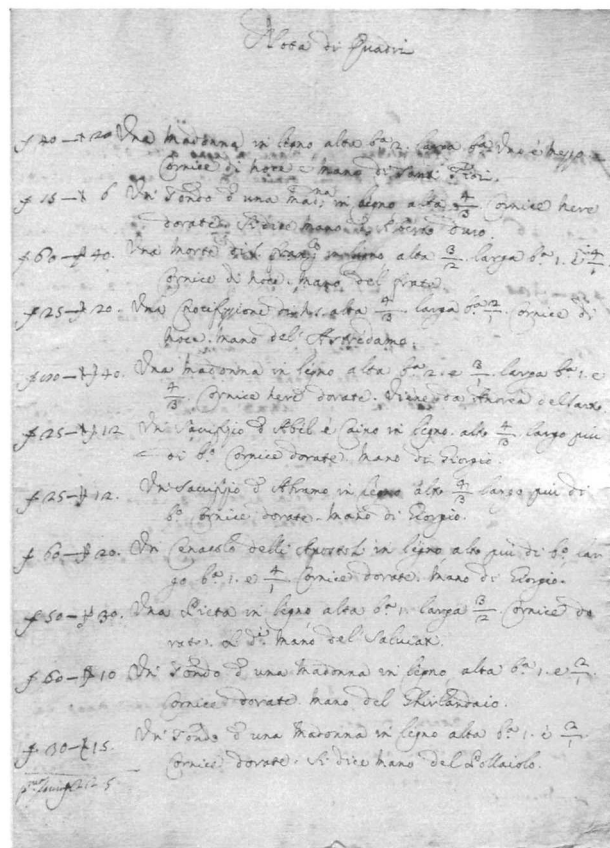 Nota di Quadri
40 — 20 Una Madonna in legno alta b.a 2. larga b.a Uno e mezzo
Cornice di noce mano di Santi Titi.
15 — 6 Un Tondo d una Mad.na in legno alta 4/3 Cornice nere
dorate. si dice mano di Alberto Duro.
60 — 40. Una morte in legno alta 3/2 larga b.a 1. e 4/1
Cornice di noce. mano del frate.
25 — 20. Una Crocifissione alta 4/3 larga b.a 2/1 cornice di
noce. mano del
40. Una Madonna in legno alta b.a 2. e 3/1 larga b.a 1. e
4/3 Cornice nere dorate. Viene da Andrea del Sarto
25 — 12 Un Sacrifitio d Abil e Caino in legno. alto 4/3 largo piu
di b.o Cornice dorate. Mano di Giorgio.
25 — 12. Un Sacrifitio d Abramo in legno alto 4/3 largo piu di
b.o Cornice dorate. Mano di Giorgio.
60 — 20. Un Cenacolo delli Apostoli in legno alto piu di b.o lar
go b.a 1. e 4/1 Cornice dorate. Mano di Giorgio.
50 — 30. Una Pieta in legno alta b.a 1. larga 3/2 Cornice do
rate. mano del Salviati.
60 — 10 Un Tondo d una Madonna in legno alta b.a 1. e 2/1
Cornice dorate mano del Ghirlandaio.
30 — 15. Un Tondo d una Madonna in legno alta b.a 1. e 2/1
Cornice dorate. si dice mano del Pollaiolo.